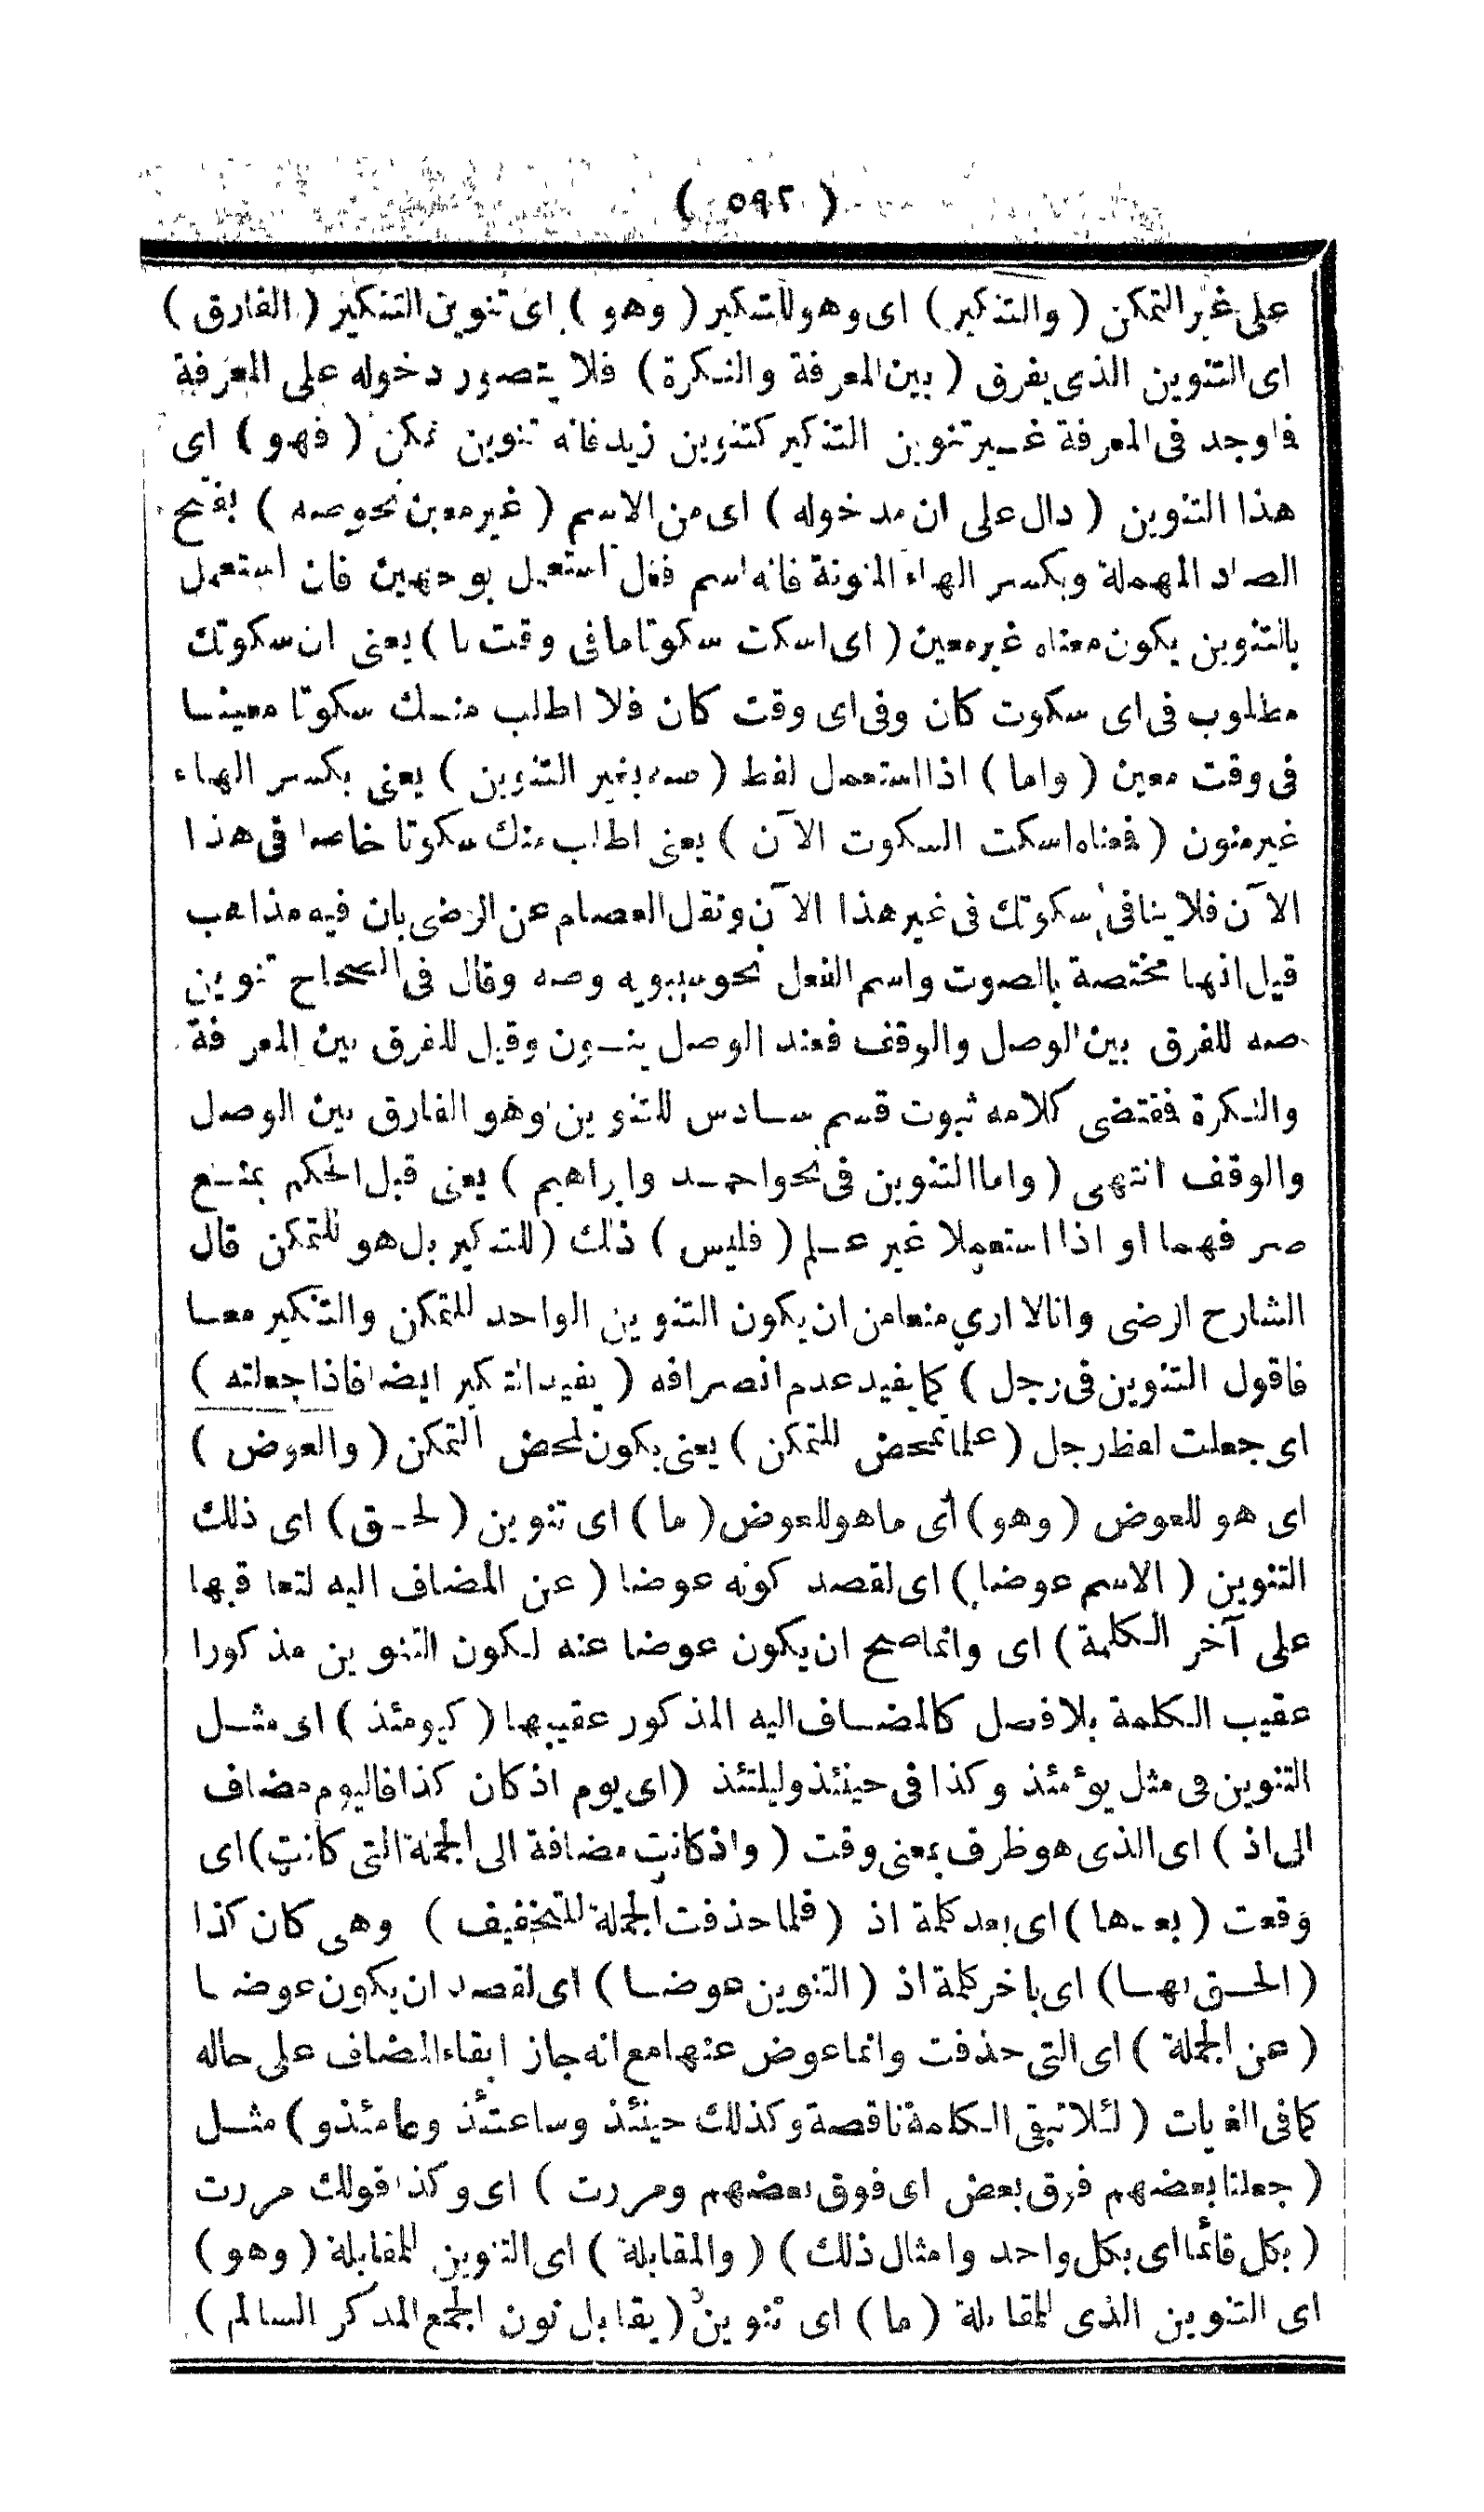 ( ٥٩٢ )
على غير التمكن ( والتنكير ) اى وهو للتنكير ( وهو ) اى تنوين التنكير ( الفارق )
اى التنوين الذى يفرق ( بين المعرفة والنكرة ) فلا يتصور دخوله على المعرفة
فاوجد فى المعرفة غير تنوين التنكير كتنوين زيد فانه تنوين تمكن ( فهو ) اى
هذا التنوين ( دال على ان مدخوله ) اى من الاسم ( غير معين نحو صه ) بفتح
الصاد المهملة وبكسر الهاء المنونة فانه اسم فعل استعمل بوجهين فان استعمل
بالتنوين يكون معناه غير معين ( اى اسكت سكوتا ما فى وقت ما ) يعنى ان سكوتك
مطلوب فى اى سكوت كان وفى اى وقت كان فلا اطلب منك سكوتا معينا
فى وقت معين ( واما ) اذا استعمل لفظ ( صه بغير التنوين ) يعنى بكسر الهاء
غير منون ( فمعناه اسكت السكوت الآن ) يعنى اطلب منك سكوتا خاصا فى هذا
الآن فلا ينافى سكوتك فى غير هذا الآن ونقل العصام عن الرضى بان فيه مذاهب
قيل انها مختصة بالصوت واسم الفعل نحو سيبويه وصه وقال فى الصحاح تنوين
صه للفرق بين الوصل والوقف فعند الوصل ينون وقيل للفرق بين المعرفة
والنكرة فقتضى كلامه ثبوت قسم سادس للتنوين وهو الفارق بين الوصل
والوقف انتهى ( واما التنوين فى نحو احمد وابراهيم ) يعنى قبل الحكم بمنع
صرفهما او اذا استعملا غير علم ( فليس ) ذلك ( للتنكير بل هو للتمكن قال
الشارح الرضى وانا لا ارى منعا من ان يكون التنوين الواحد للتمكن والتنكير معا
فاقول التنوين فى رجل ) كما يفيد عدم انصرافه ( يفيد التنكير ايضا فاذا جعلته )
اى جعلت لفظ رجل ( علما تمحض للتمكن ) يعنى يكون لمحض التمكن ( والعوض )
اى هو للعوض ( وهو ) أى ما هو للعوض ( ما ) اى تنوين ( لحق ) اى ذلك
التنوين ( الاسم عوضا ) اى لقصد كونه عوضا ( عن المضاف اليه لتعاقبها
على آخر الكلمة ) اى وانما صح ان يكون عوضا عنه لكون التنوين مذكورا
عقيب الكلمة بلا فصل كالمضاف اليه المذكور عقيبها ( كيومئذ ) اى مثل
التنوين فى مثل يومئذ وكذا فى حينئذ وليلتئذ ( اى يوم اذ كان كذا فاليوم مضاف
الى اذ ) اى الذى هو ظرف بمعنى وقت ( واذ كانت مضافة الى الجملة التى كانت ) اى
وقعت ( بعدها ) اى بعد كلمة اذ ( فلما حذفت الجملة للتخفيف ) وهى كان كذا
( الحق بها ) اى باخر كلمة اذ ( التنوين عوضا ) اى لقصد ان يكون عوضا
( عن الجملة ) اى التى حذفت وانما عوض عنها مع انه جاز ابقاء المضاف على حاله
كما فى الغايات ( لئلا تبقى الكلمة ناقصة وكذلك حينئذ وساعتئذ وعامئذ و ) مثل
( جعلنا بعضهم فوق بعض اى فوق بعضهم ومررت ) اى وكذا قولك مررت
( بكل قائما اى بكل واحد وامثال ذلك ) ( والمقابلة ) اى التنوين للمقابلة ( وهو )
اى التنوين الذى للمقابلة ( ما ) اى تنوين ( يقابل نون الجمع المذكر السالم )